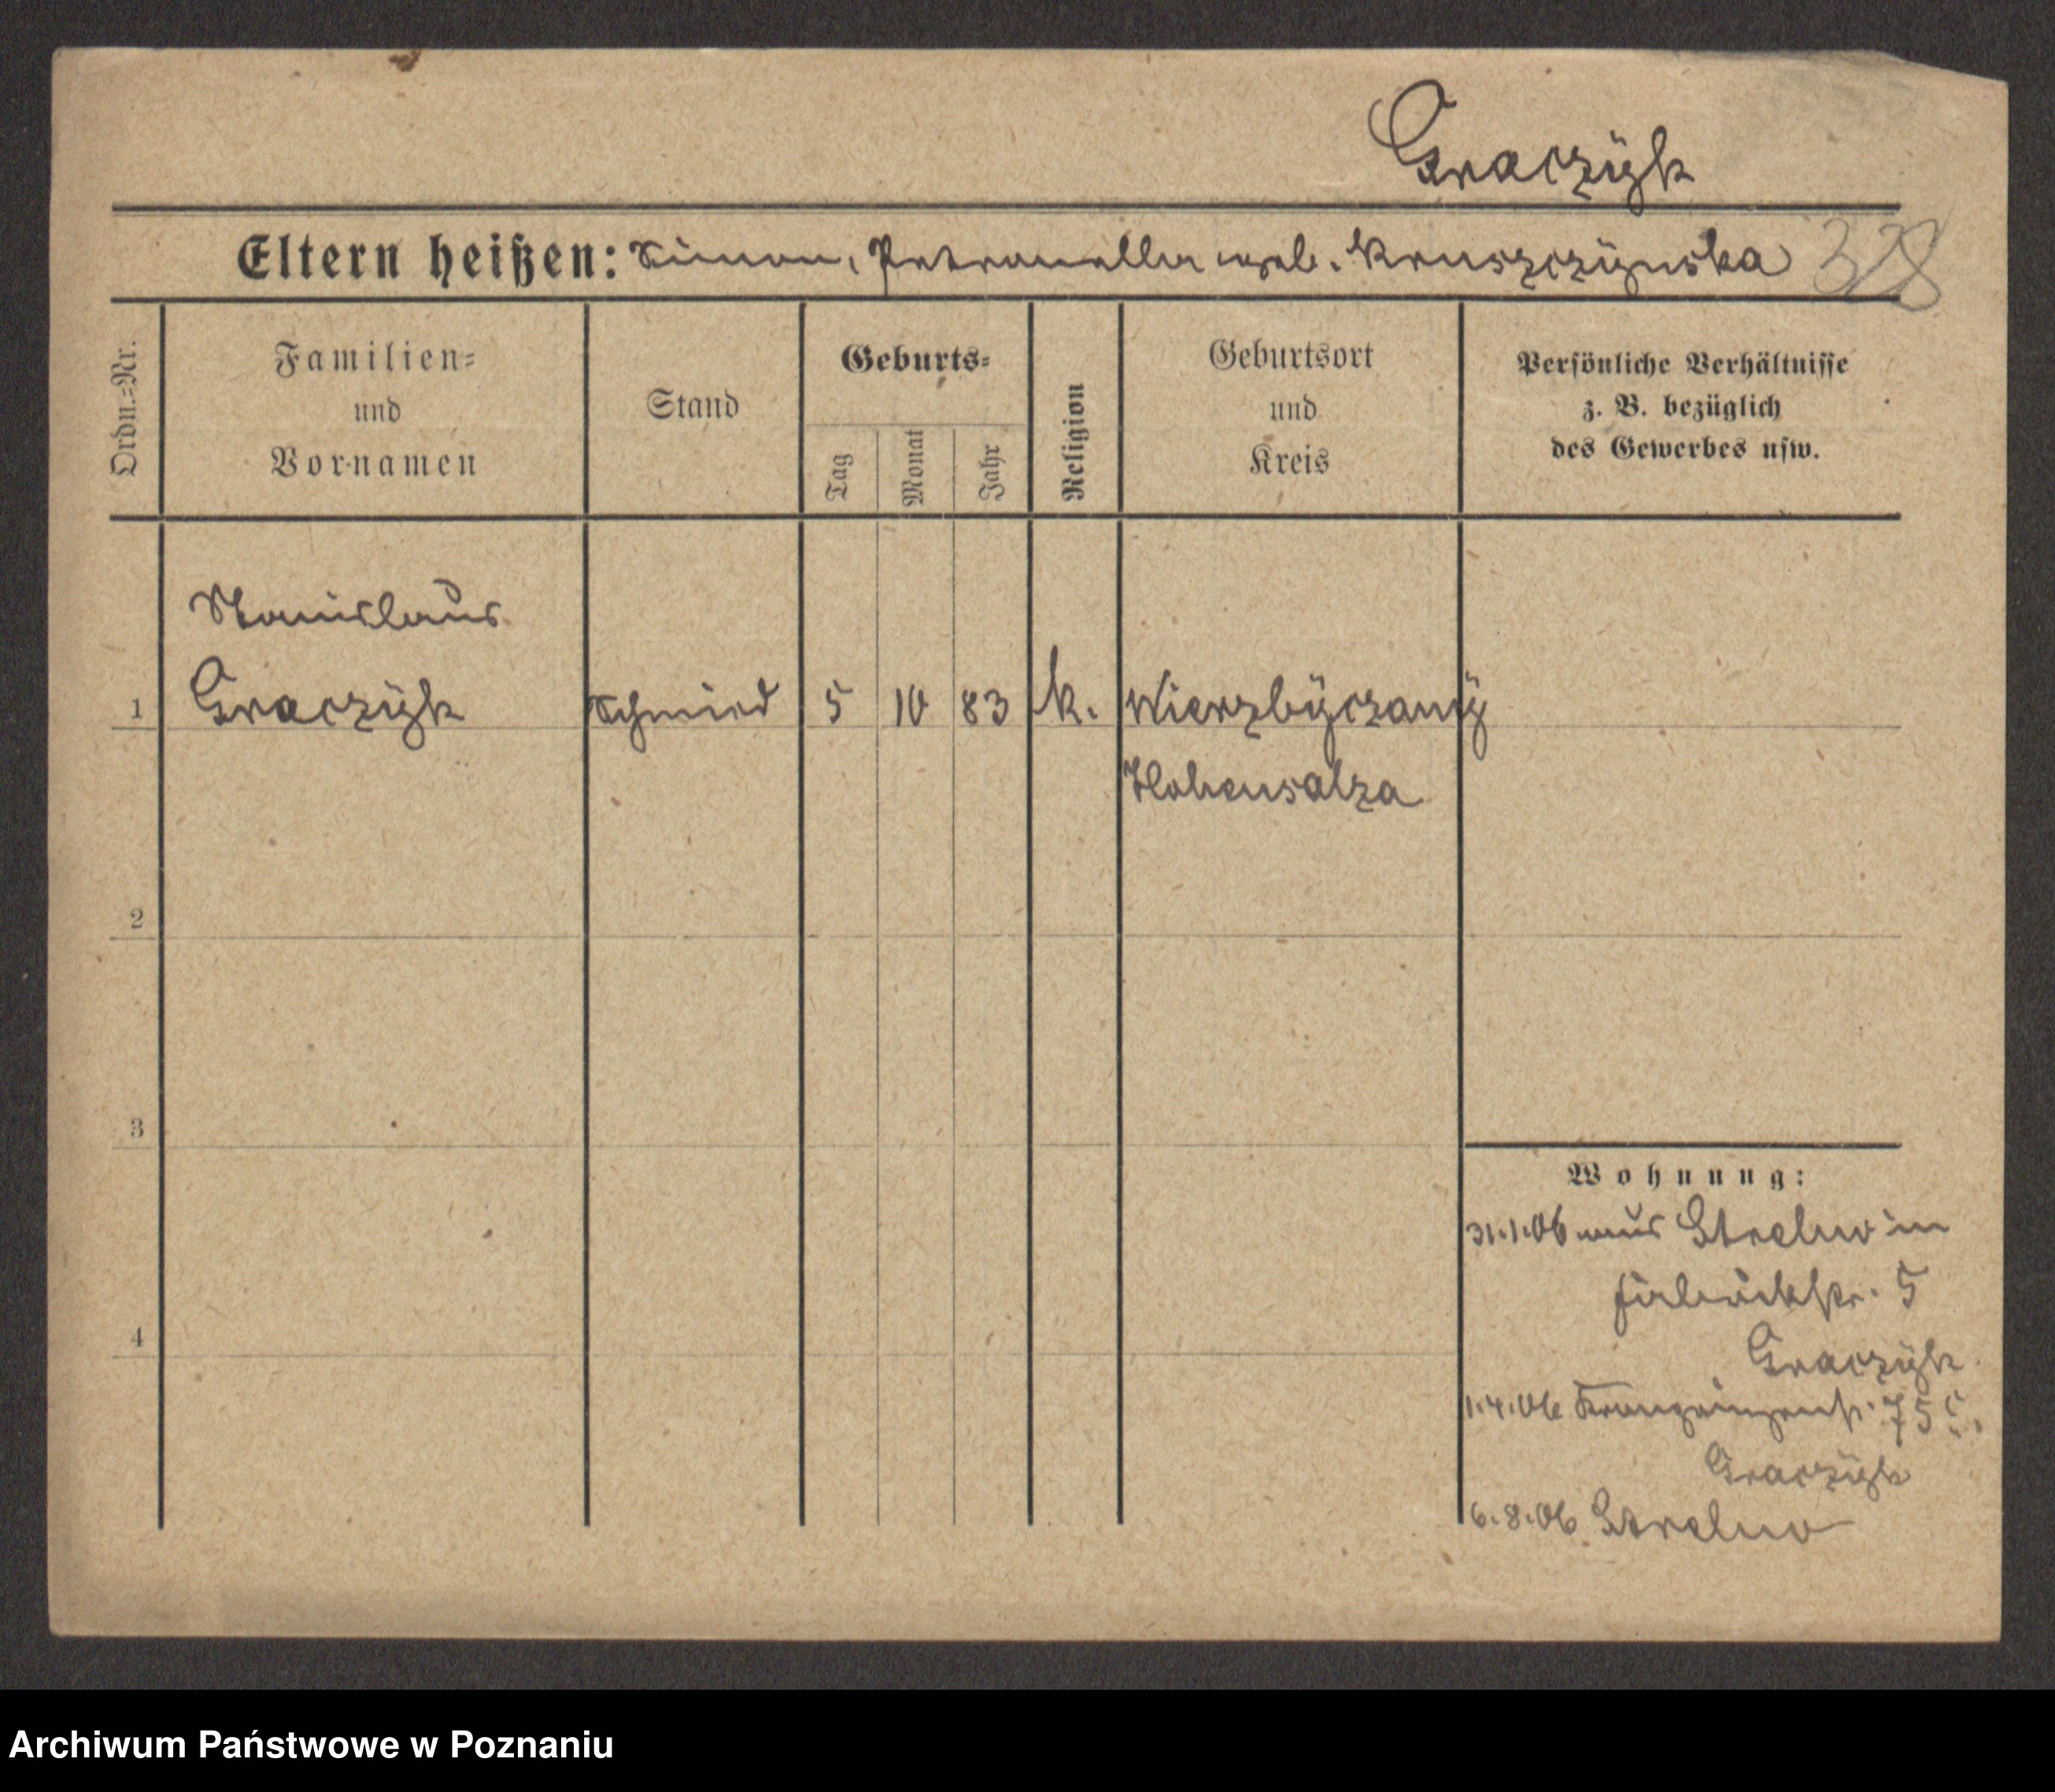 Graczÿk
Eltern heißen: Simon, Petronella geb. Kruszczÿnska 328
Ordn.=Nr.
Familien=
und
Vornamen
Stand
Geburts=
Tag
Monat
Jahr
Religion
Geburtsort
und
Kreis
Persönliche Verhältnisse
z. B. bezüglich
des Gewerbes usw.
Stanislaus
1 Graczÿk Schmied 5 10 83 k. Wierzbÿczanÿ
Hohensalza
2
3
4
Wohnung:
31.1.06 aus Strelno in
5
Graczÿk
1.4.06 75
Graczÿk
6.8.06 Strelno
Archiwum Państwowe w Poznaniu